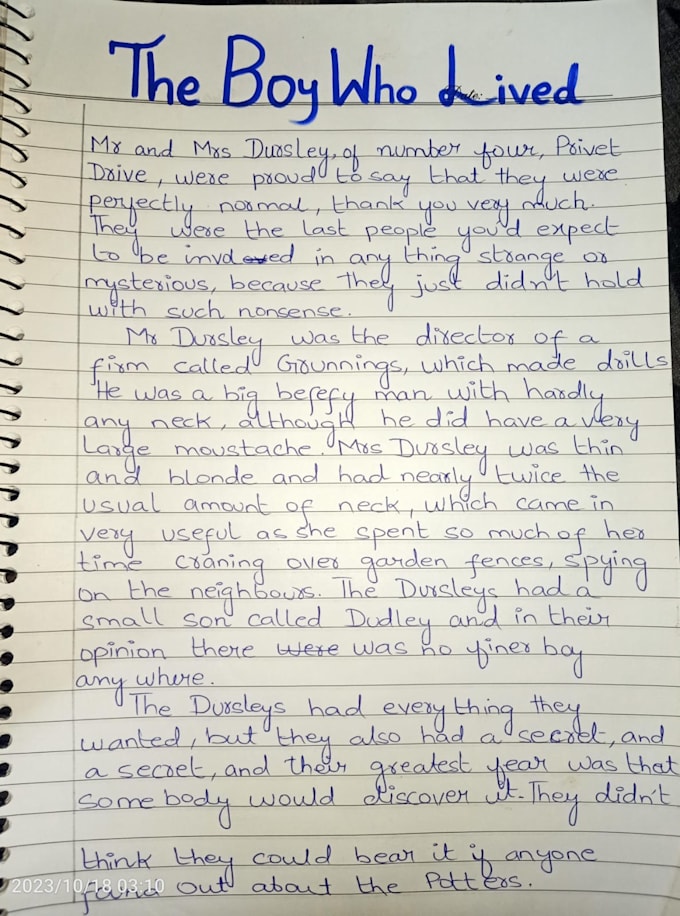 The Boy Who Lived
Date:
Mr and Mrs Dursley, of number four, Privet
Drive, were proud to say that they were
perfectly normal, thank you very much.
They were the last people you'd expect
to be invd oved in any thing strange or
mysterious, because they just didn't hold
with such nonsense.
Mr Dursley was the director of a
firm called Grunnings, which made drills
He was a big befefy man with hardly
any neck, although he did have a very
Large moustache. Mrs Dursley was thin
and blonde and had nearly twice the
usual amount of neck, which came in
very useful as she spent so much of her
time craning over garden fences, spying
on the neighbours. The Dursleys had a
small son called Dudley and in their
opinion there were was no finer boy
any where.
The Dursleys had every thing they
wanted, but they also had a secret, and
a secret, and their greatest fear was that
some body would discover it. They didn't
think they could bear it if anyone
found out about the Potters.
2023/10/18 03:10